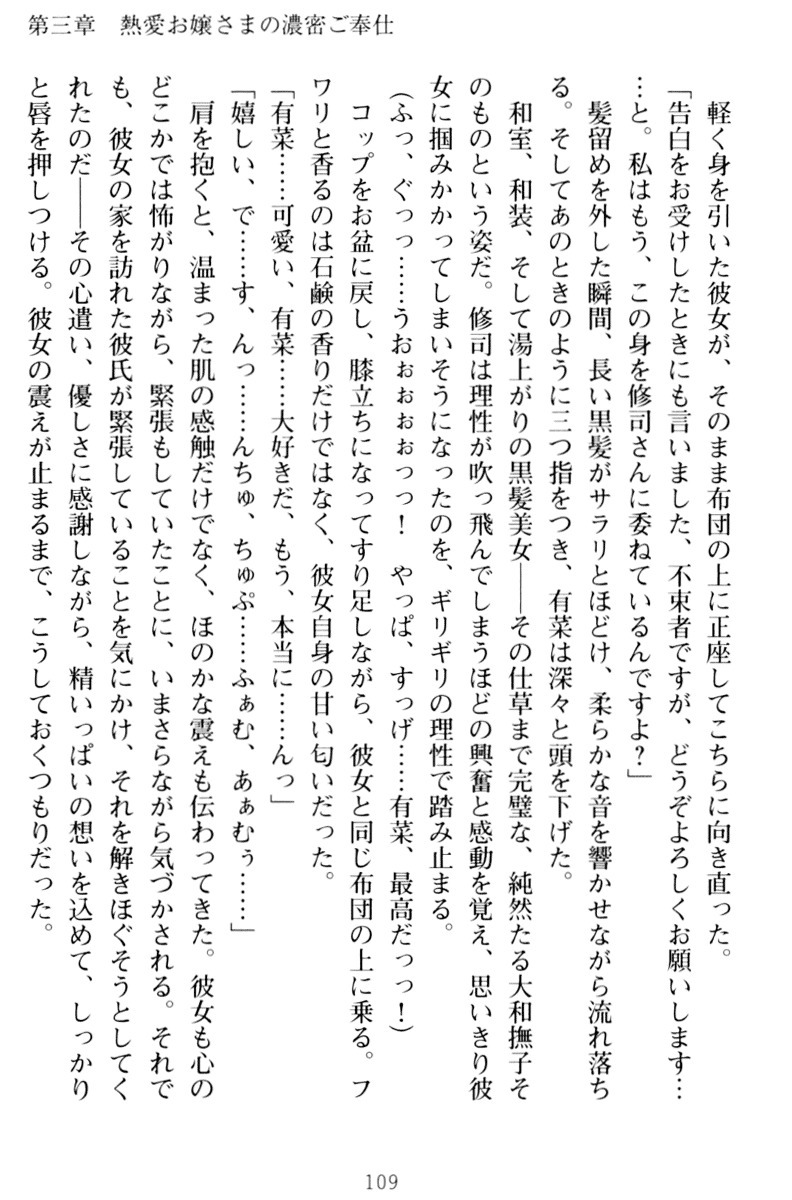 第三章　熱愛お嬢さまの濃密ご奉仕
　軽く身を引いた彼女が、そのまま布団の上に正座してこちらに向き直った。
「告白をお受けしたときにも言いました、不束者ですが、どうぞよろしくお願いします…
…と。私はもう、この身を修司さんに委ねているんですよ？」
　髪留めを外した瞬間、長い黒髪がサラリとほどけ、柔らかな音を響かせながら流れ落ち
る。そしてあのときのように三つ指をつき、有菜は深々と頭を下げた。
　和室、和装、そして湯上がりの黒髪美女――その仕草まで完璧な、純然たる大和撫子そ
のものという姿だ。修司は理性が吹っ飛んでしまうほどの興奮と感動を覚え、思いきり彼
女に掴みかかってしまいそうになったのを、ギリギリの理性で踏み止まる。
（ふっ、ぐっっ……うおぉぉぉぉっっ！　やっぱ、すっげ……有菜、最高だっっ！）
　コップをお盆に戻し、膝立ちになってすり足しながら、彼女と同じ布団の上に乗る。フ
ワリと香るのは石鹸の香りだけではなく、彼女自身の甘い匂いだった。
「有菜……可愛い、有菜……大好きだ、もう、本当に……んっ」
「嬉しい、で……す、んっ……んちゅ、ちゅぷ……ふぁむ、あぁむぅ……」
　肩を抱くと、温まった肌の感触だけでなく、ほのかな震えも伝わってきた。彼女も心の
どこかでは怖がりながら、緊張もしていたことに、いまさらながら気づかされる。それで
も、彼女の家を訪れた彼氏が緊張していることを気にかけ、それを解きほぐそうとしてく
れたのだ――その心遣い、優しさに感謝しながら、精いっぱいの想いを込めて、しっかり
と唇を押しつける。彼女の震えが止まるまで、こうしておくつもりだった。
109